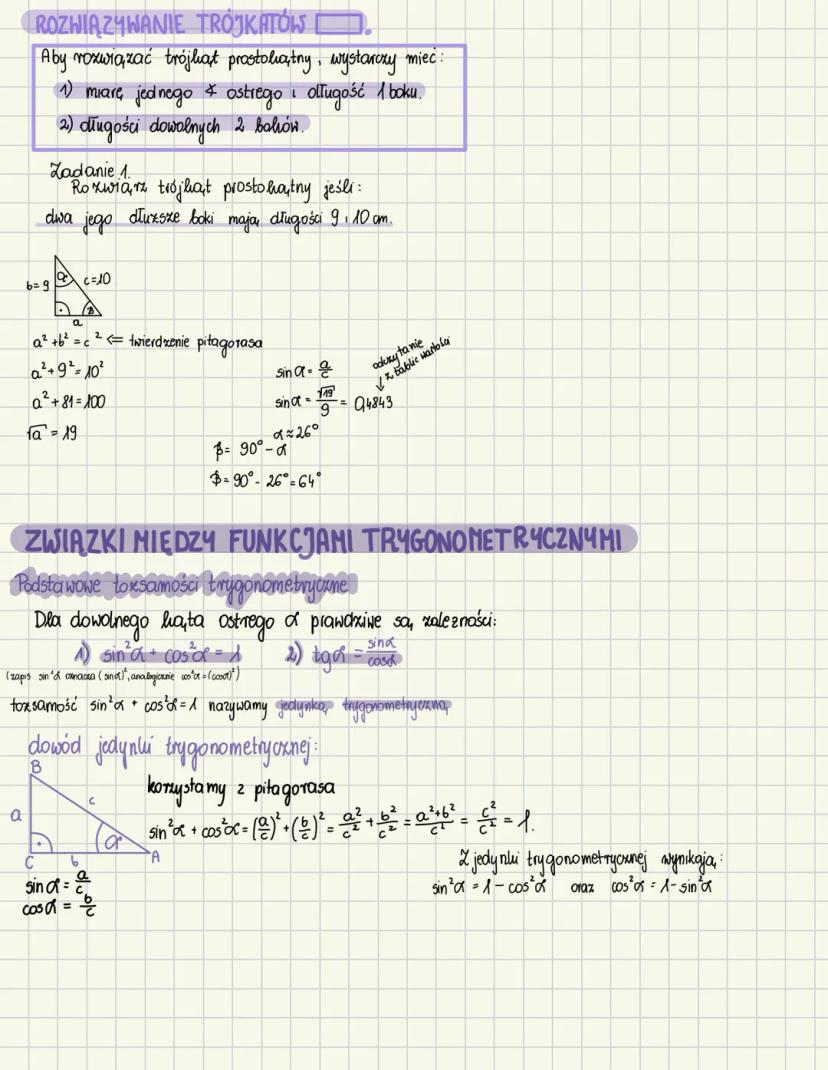 ROZWIĄZYWANIE TRÓJKĄTÓW ▭.
Aby rozwiązać trójkąt prostokątny, wystarczy mieć:
1) miarę jednego ∢ ostrego i długość 1 boku.
2) długości dowolnych 2 boków.
Zadanie 1.
Rozwiąrz trójkąt prostokątny jeśli:
dwa jego dłuższe boki mają długości 9 i 10 cm.
b=9
α
c=10
β
a
a² + b² = c² ⇐ twierdzenie pitagorasa
a² + 9² = 10²
a² + 81 = 100
√a = 19
sin α = a/c
odczytanie z tablic wartości
sin α = √19/9 = 0,4843
α ≈ 26°
β = 90° - α
β = 90° - 26° = 64°
ZWIĄZKI MIĘDZY FUNKCJAMI TRYGONOMETRYCZNYMI
Podstawowe tożsamości trygonometryczne
Dla dowolnego kąta ostrego α prawdziwe są zależności:
1) sin²α + cos²α = 1 2) tgα = sinα/cosα
(zapis sin²α oznacza (sinα)², analogicznie cos²α = (cosα)²)
tożsamość sin²α + cos²α = 1 nazywamy jedynką trygonometryczną
dowód jedynki trygonometrycznej:
B
a
c
α
C
b
A
korzystamy z pitagorasa
sin²α + cos²α = (a/c)² + (b/c)² = a²/c² + b²/c² = a²+b²/c² = c²/c² = 1.
sin α = a/c
cos α = b/c
Z jedynki trygonometrycznej wynikają:
sin²α = 1 - cos²α oraz cos²α = 1 - sin²α